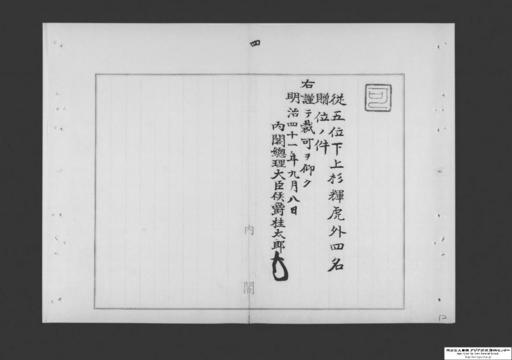 四
従五位下上杉輝虎外四名
贈位ノ件
右謹テ裁可ヲ仰ク
明治四十一年九月八日
内閣總理大臣侯爵桂太郎
内閣